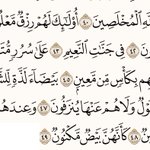 ٱلْمُخْلَصِينَ ٤٠ أُوْلَٰٓئِكَ لَهُمْ رِزْقٌ مَّعْلُ
فِي جَنَّٰتِ ٱلنَّعِيمِ ٤٣ عَلَىٰ سُرُرٍ مُّتَ
هِم بِكَأْسٍ مِّن مَّعِينٍ ٤٥ بَيْضَآءَ لَذَّةٍ لِّلشَّ
وَلَا هُمْ عَنْهَا يُنزَفُونَ ٤٧ وَعِندَهُ
٤٨ كَأَنَّهُنَّ بَيْضٌ مَّكْنُونٌ